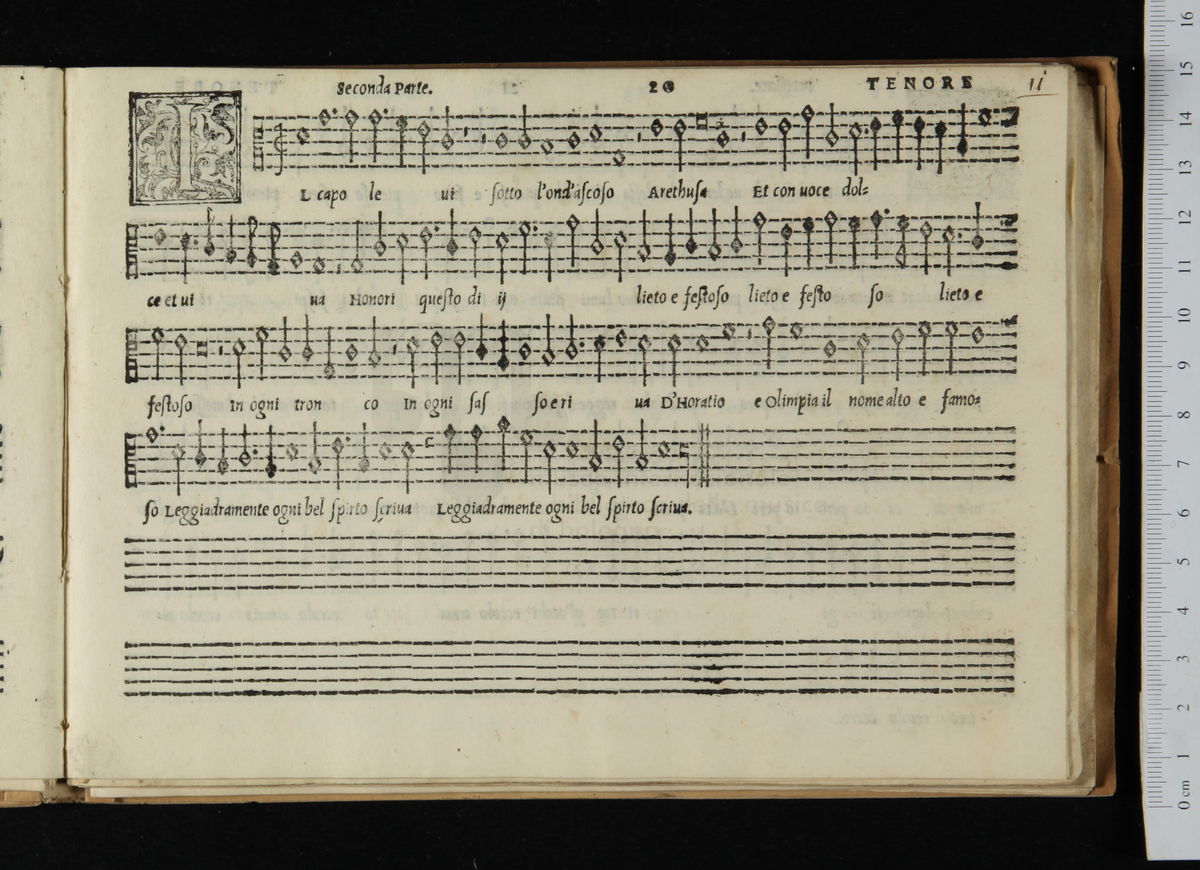 Seconda Parte. 20 TENORE 11
IL capo le ui sotto l'ond'ascoso Arethusa Et con uoce dol=
ce et ui ua Honori questo di ij lieto e festoso lieto e festo so lieto e
festoso In ogni tron co In ogni sas so e ri ua D'Horatio e Olimpia il nome alto e famo=
so Leggiadramente ogni bel spirto scriua Leggiadramente ogni bel spirto scriua.
16
15
14
13
12
11
10
9
8
7
6
5
4
3
2
1
0 cm